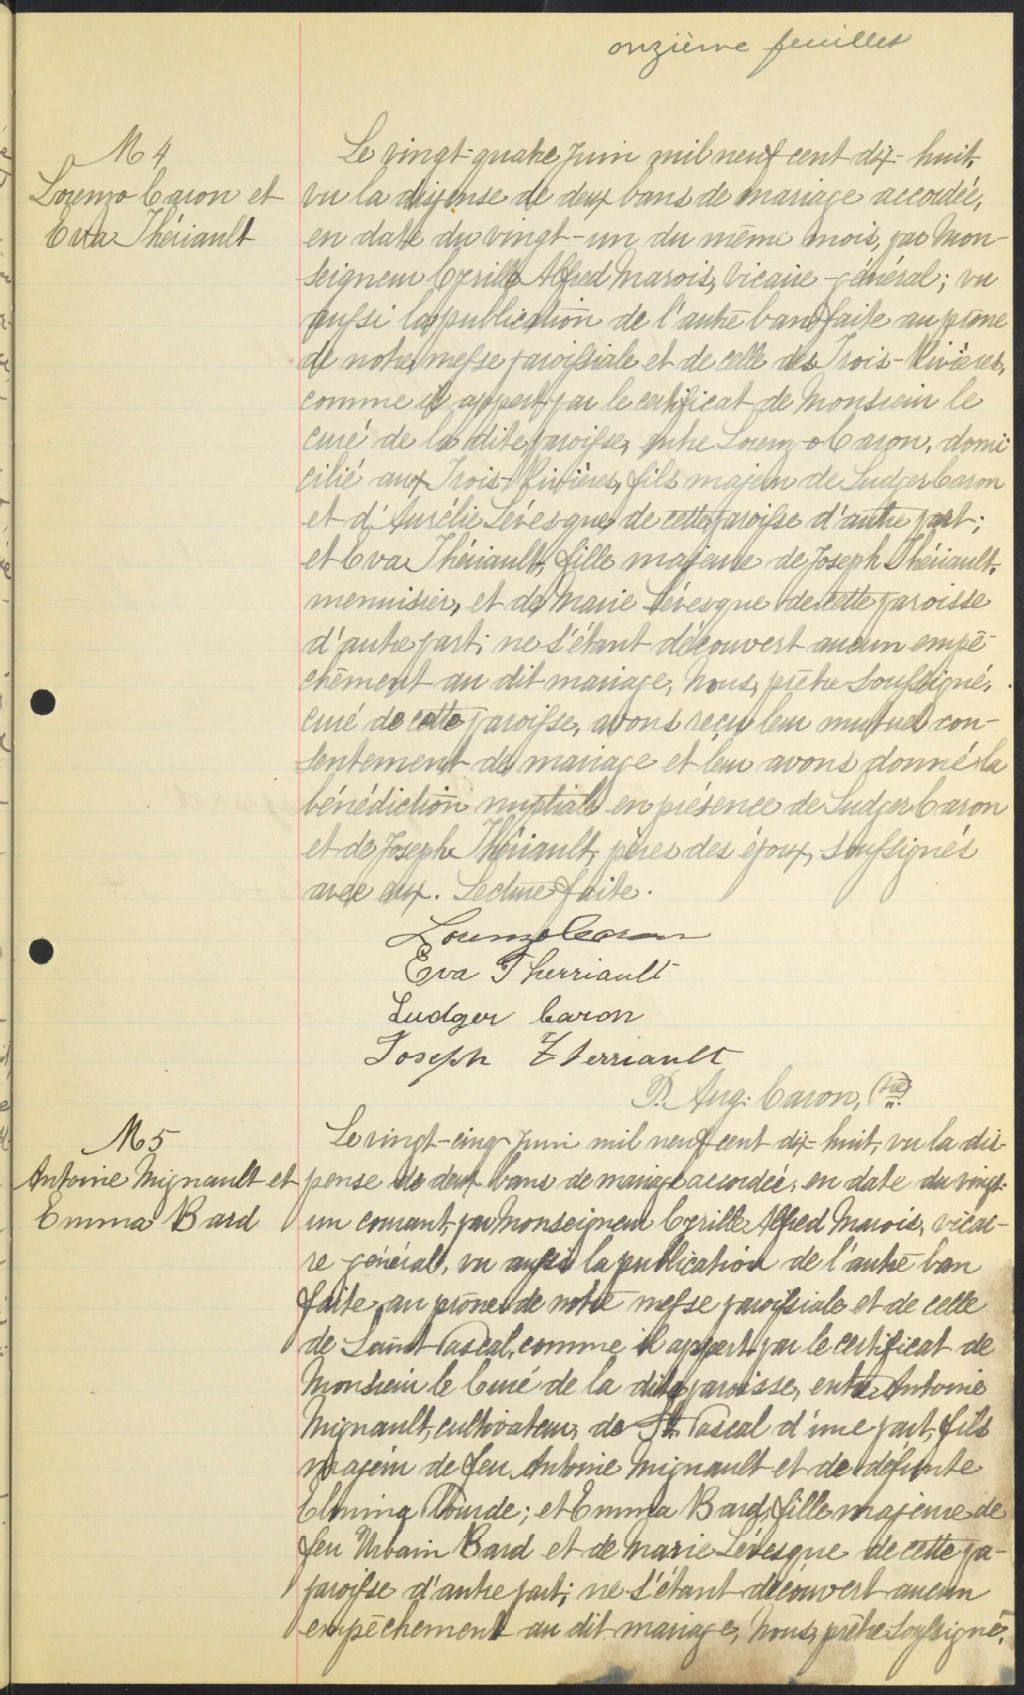 onzième feuillet
M 4
Lorenzo Caron et
Eva Thériault
Le vingt-quatre Juin mil neuf cent dix-huit,
vu la dispense de deux bans de mariage accordée,
en date du vingt-un du même mois, par Mon-
seigneur Cyrille Alfred Marois, Vicaire-général; vu
aussi la publication de l'autre ban faite au prône
de notre messe paroissiale et de celle des Trois-Rivières,
comme il appert par le certificat de Monsieur le
curé de la dite paroisse, entre Lorenzo Caron, domi
cilié aux Trois-Rivières, fils majeur de Ludger Caron
et d'Aurélie Lévesque, de cette paroisse d'autre part;
et Eva Thériault, fille majeure de Joseph Thériault,
menuisier, et de Marie Lévesque de cette paroisse
d'autre part; ne s'étant découvert aucun empê-
chement au dit mariage, Nous, prêtre soussigné,
curé de cette paroisse, avons reçu leur mutuel con-
sentement de mariage et leur avons donné la
bénédiction nuptiale en présence de Ludger Caron
et de Joseph Thériault, pères des époux, soussignés
avec eux. Lecture faite.
Lorenzo Caron
Eva Therriault
Ludger Caron
Joseph Therriault
P. Aug. Caron, Ptre
M 5
Antoine Mignault et
Emma Bard
Le vingt-cinq Juin mil neuf cent dix-huit, vu la dis-
pense de deux bans de mariage accordée, en date du vingt-
un courant, par Monseigneur Cyrille Alfred Marois, vicai-
re général, vu aussi la publication de l'autre ban
faite au prône de notre messe paroissiale et de celle
de Saint Pascal, comme il appert par le certificat de
Monsieur le Curé de la dite paroisse, entre Antoine
Mignault, cultivateur, de St. Pascal d'une part, fils
majeur de feu Antoine Mignault et de défunte
Elmina Dourde; et Emma Bard, fille majeure de
feu Urbain Bard et de Marie Lévesque de cette pa-
paroisse d'autre part; ne s'étant découvert aucun
empêchement au dit mariage, Nous, prêtre soussigné,